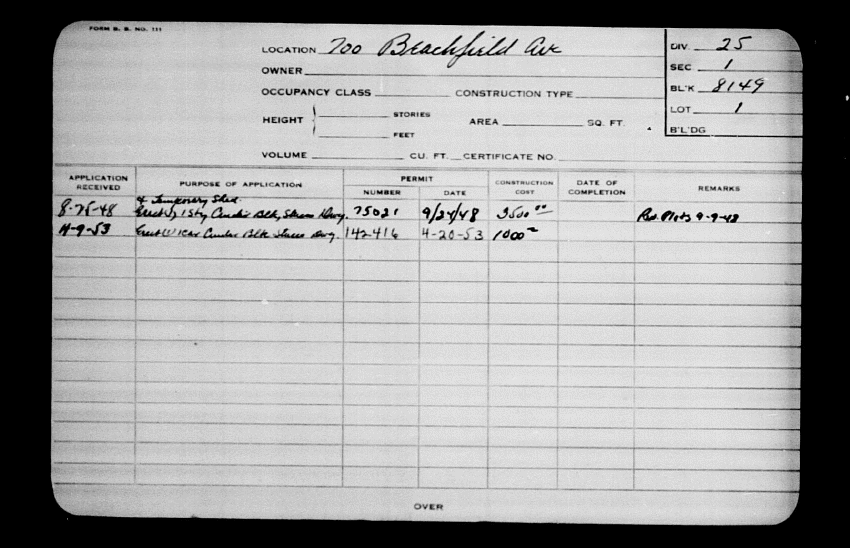 FORM B. B. NO. 111
LOCATION 700 Beachfield Ave
DIV. 25
OWNER
SEC 1
OCCUPANCY CLASS CONSTRUCTION TYPE
BL'K 8149
HEIGHT STORIES AREA SQ. FT.
LOT 1
FEET
B'L'DG
VOLUME CU. FT. CERTIFICATE NO.
APPLICATION RECEIVED PURPOSE OF APPLICATION PERMIT NUMBER DATE CONSTRUCTION COST DATE OF COMPLETION REMARKS
& Temporary Shed
8-25-48 Erect 1 Sty Cinder Blk, Dwg. 75021 9/24/48 3500 00 Plots 9-9-48
4-9-53 Erect 1 Car Cinder Blk Dwg. 142416 4-20-53 1000
OVER